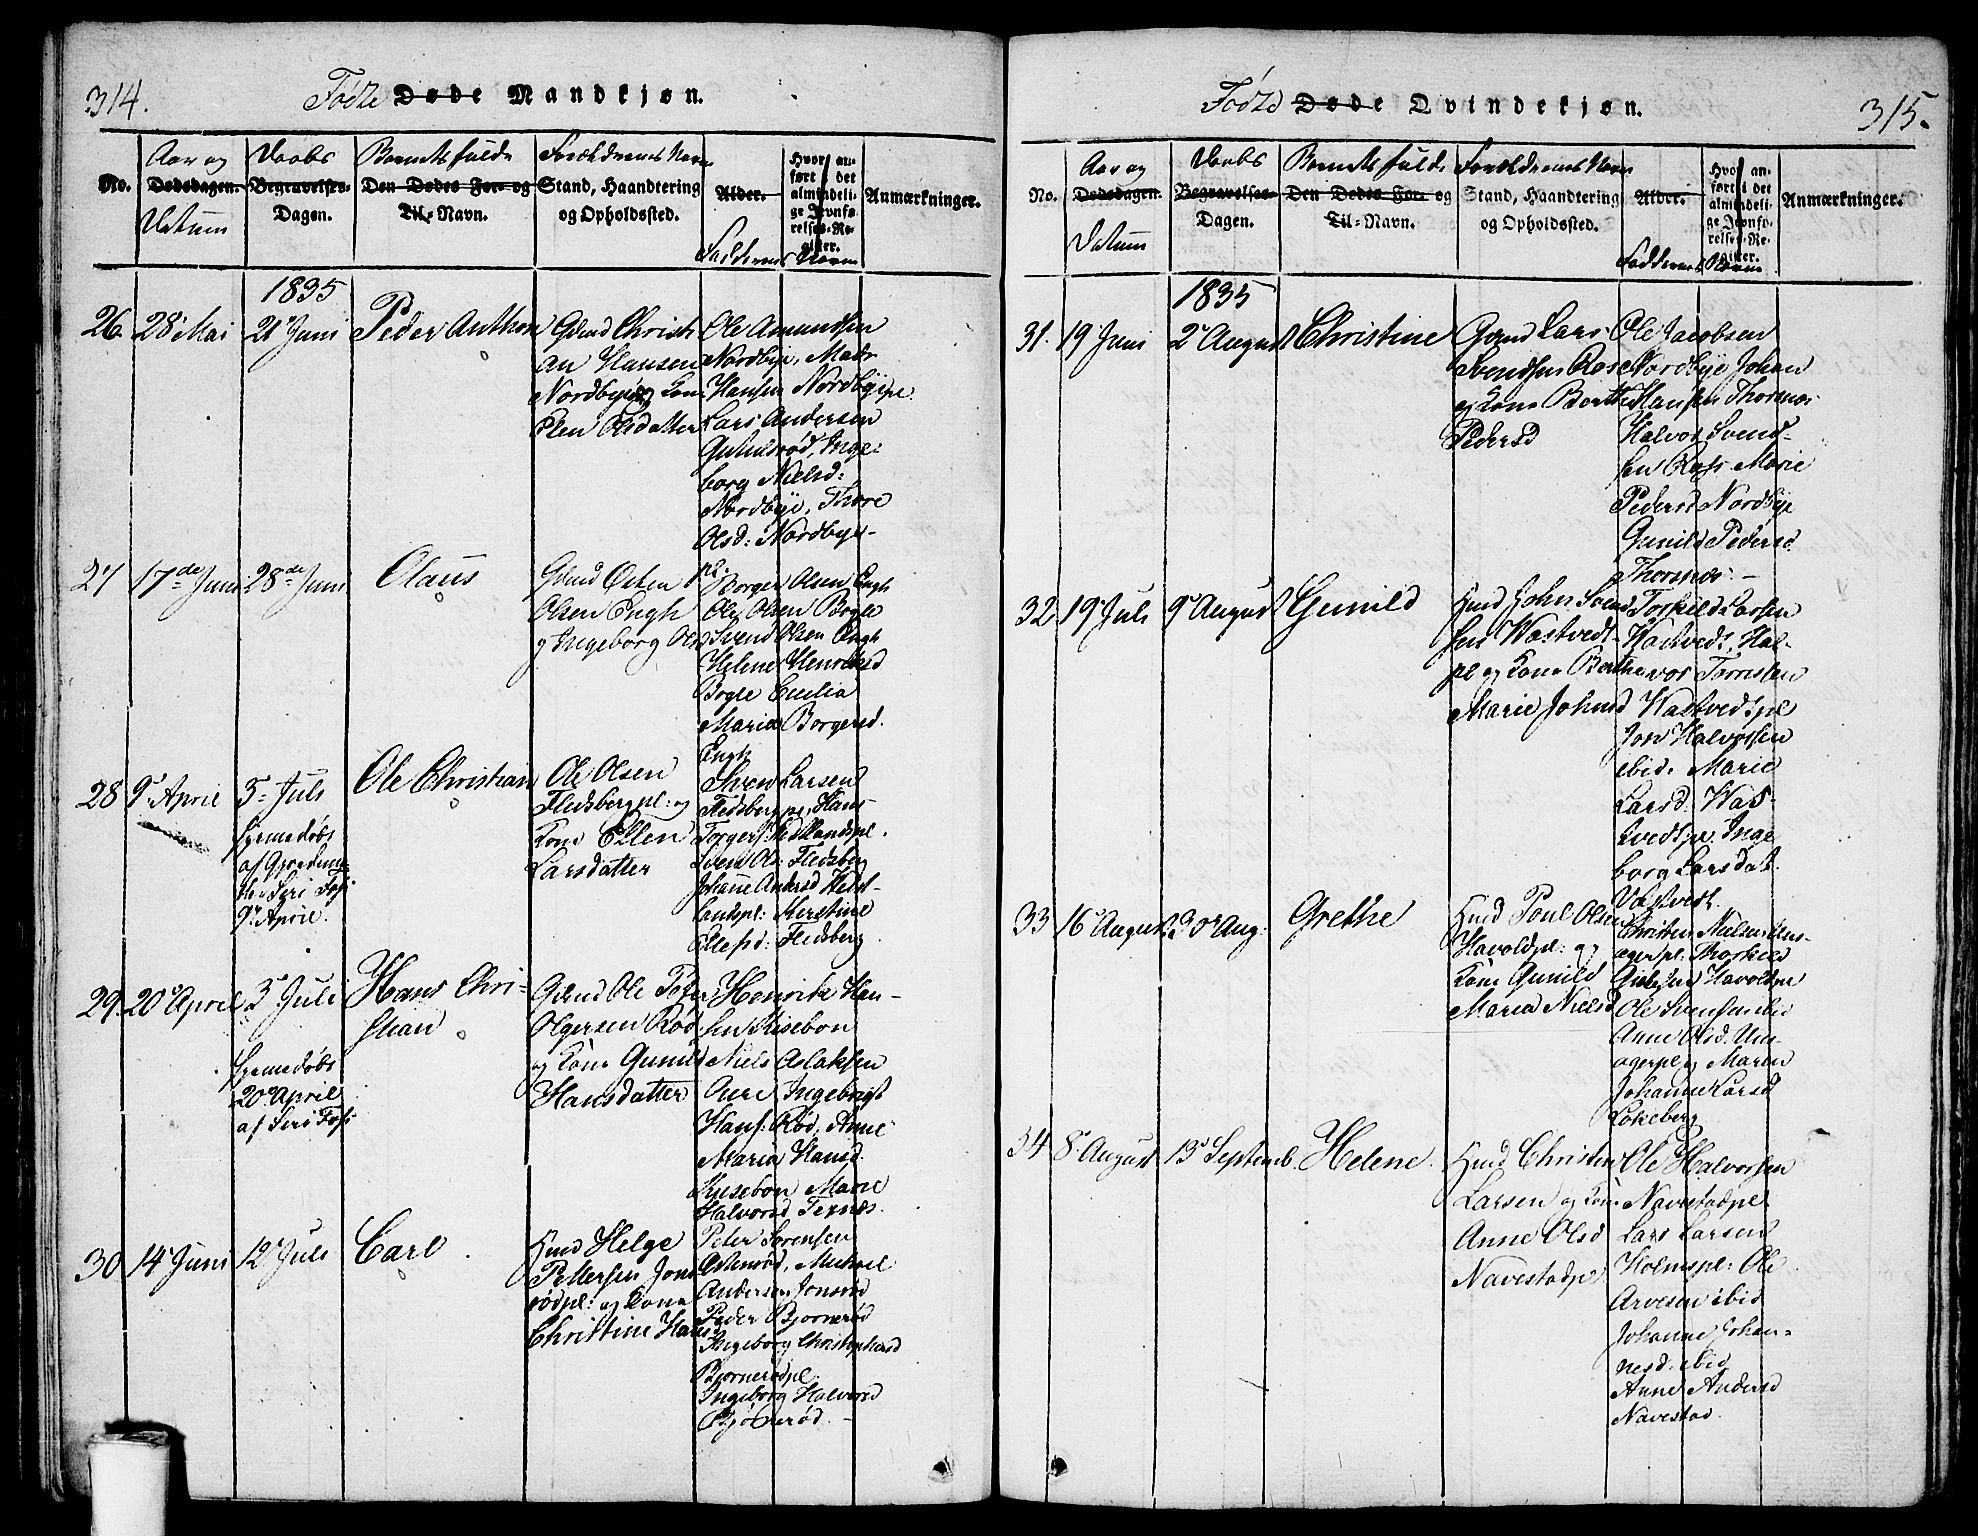 314.
Fødte Døde Mandkjøn.
No.
Aar og
Dødsdagen.
Datum
Daabs
Begravelses-
Dagen.
Barnets fulde
Den Dødes For- og
Til-Navn.
Forældrenes Navn
Stand, Haandtering
og Opholdssted.
Alder.
Hvor an-
ført i det
almindeli-
ge Jevnfø-
relses-Re-
gister.
Faddernes Navn
Anmærkninger.
1835
26. 28 Mai
21 Juni
Peder Anthon
Gdmd Christi
an Hansen
Nordbye og Kone
Elen Olsdatter
Ole Amundsen
Nordbye, Mads
Hansen Nordbyepl.
Lars Andersen
Inge-
borg Nielsd:
Nordbye, Thore
Olsd: Nordbye-
27 17de Juni
28de Juni
Olaus
Gdmd Osten
Olsen Engh
og Ingeborg Olsd
Borger Olsen Engh
Ole Olsen Bogle
Svend Olsen Engh
Helene Henriksd
Bogle
Maria Borgersd.
Engh
28 9 April
5 Juli
hjemedøbt
af
9 April.
Ole Christian
Ole Olsen
Fledsbergpl: og
Kone Ellen
Larsdatter
Sven Larsen
Fledsbergpl, Hans
Sven Ols: Fledsberg
Johane Andersd
Kerstine
Fledsberg
29. 20 April
5 Juli
hjemedøbt
20 April
af Siri
Hans Chri-
stian
Gdmd Ole
Olgersen Rød
og Kone Gunild
Hansdatter
Henrik Han-
sen
Niels Aslaksen
Aure Ingebrigt
Hans: Rød, Anne
Maria Hansd.
Marie
Halvorsd
30 14 Juni
12 Juli
Carl
Huusmd Helge
Pettersen Jons
rødpl: og Kone
Christine Hans
Peter Sørensen
Ostenrød, Michael
Andersen Jonsrød
Peder Bjørnerød
Ingeborg Christophersd
Bjørnerødpl.
Ingeborg Halvorsd
315.
Fødte Døde Qvindekjøn.
No.
Aar og
Dødsdagen.
Datum
Daabs
Begravelses-
Dagen.
Barnets fulde
Den Dødes For- og
Til-Navn.
Forældrenes Navn
Stand, Haandtering
og Opholdssted.
Alder.
Hvor an-
ført i det
almindeli-
ge Jevnfø-
relses-Re-
gister.
Faddernes Navn
Anmærkninger.
1835
31. 19 Juni
2 August
Christine
Gdmd Lars
Svendsen
og Kone Berthe
Pedersd
Ole Jacobsen
Nordbye Johan
Hansen Thorsnæs
Halvor Svend-
sen Marie
Pedersd Nordbye
Gunild Pedersd
Thorsnæs. -
32. 19 Juli
9 August
Gunild
John Svend
sen Wastvedt-
pl og Kone Berthe
Marie Johnsd
Torkild Larsen
Wastvedt, Hal-
vor Torresten
Wastvedtpl
Jon Halvorsen
ebid. Marie
Larsd. Wast-
vedtpl. Inge
borg Larsdat.
Vastvedt.
33 16 August
30 Aug:
Grethe
Poul Olsen
Havoldpl: og
Kone Gunild
Maria Nielsd
Christen Nielsen
Thorkild
Havoldpl
Ole Svensen ebid
Anne Olsd.
og Maren
Johanne Larsd
Lokeberg
34 8 August
13 Septemb.
Helene
Christen
Larsen og Kone
Anne Olsd
Navestadpl
Ole Halvorsen
Navestadpl.
Lars Larsen
Holmspl: Ole
Arvesen ebid
Johanne Johan-
nesd. ebid
Anne Andersd
Navestad.